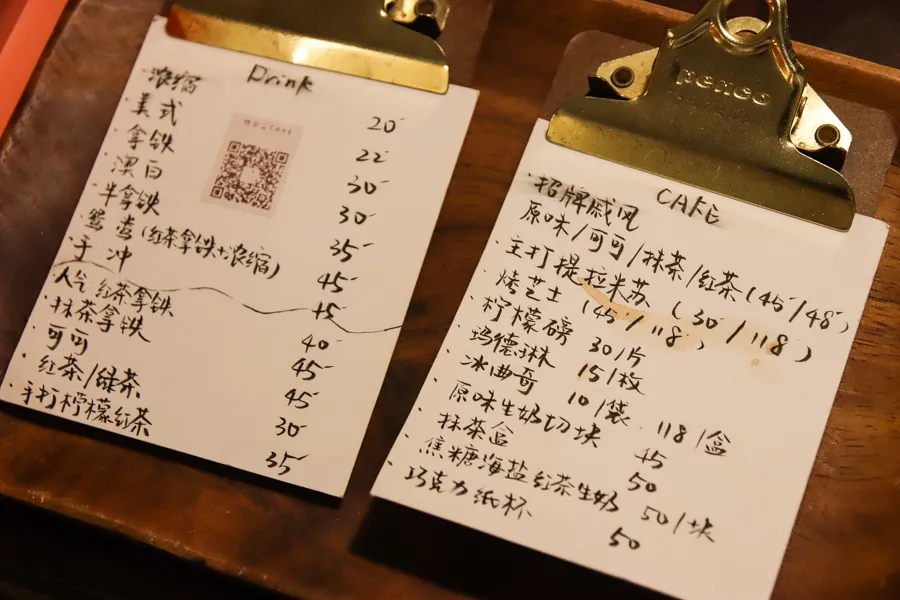 Drink
·浓缩 20
·美式 22
·拿铁 30
·澳白 30
·牛拿铁 35
·鸳鸯(红茶拿铁+浓缩) 45
·手冲 45
·人气红茶拿铁 40
·抹茶拿铁 45
·可可 45
·红茶/绿茶 30
·手打柠檬红茶 35
penco
CAKE
·招牌戚风
原味/可可/抹茶/红茶(45/48)
·主打提拉米苏 (30/118)
·烤芝士 (45/118)
·柠檬磅 30/片
·玛德琳 15/枚
·冰曲奇 10/袋 118/盒
·原味生奶切块 45
·抹茶盒 50
·焦糖海盐红茶生奶 50/块
·巧克力纸杯 50